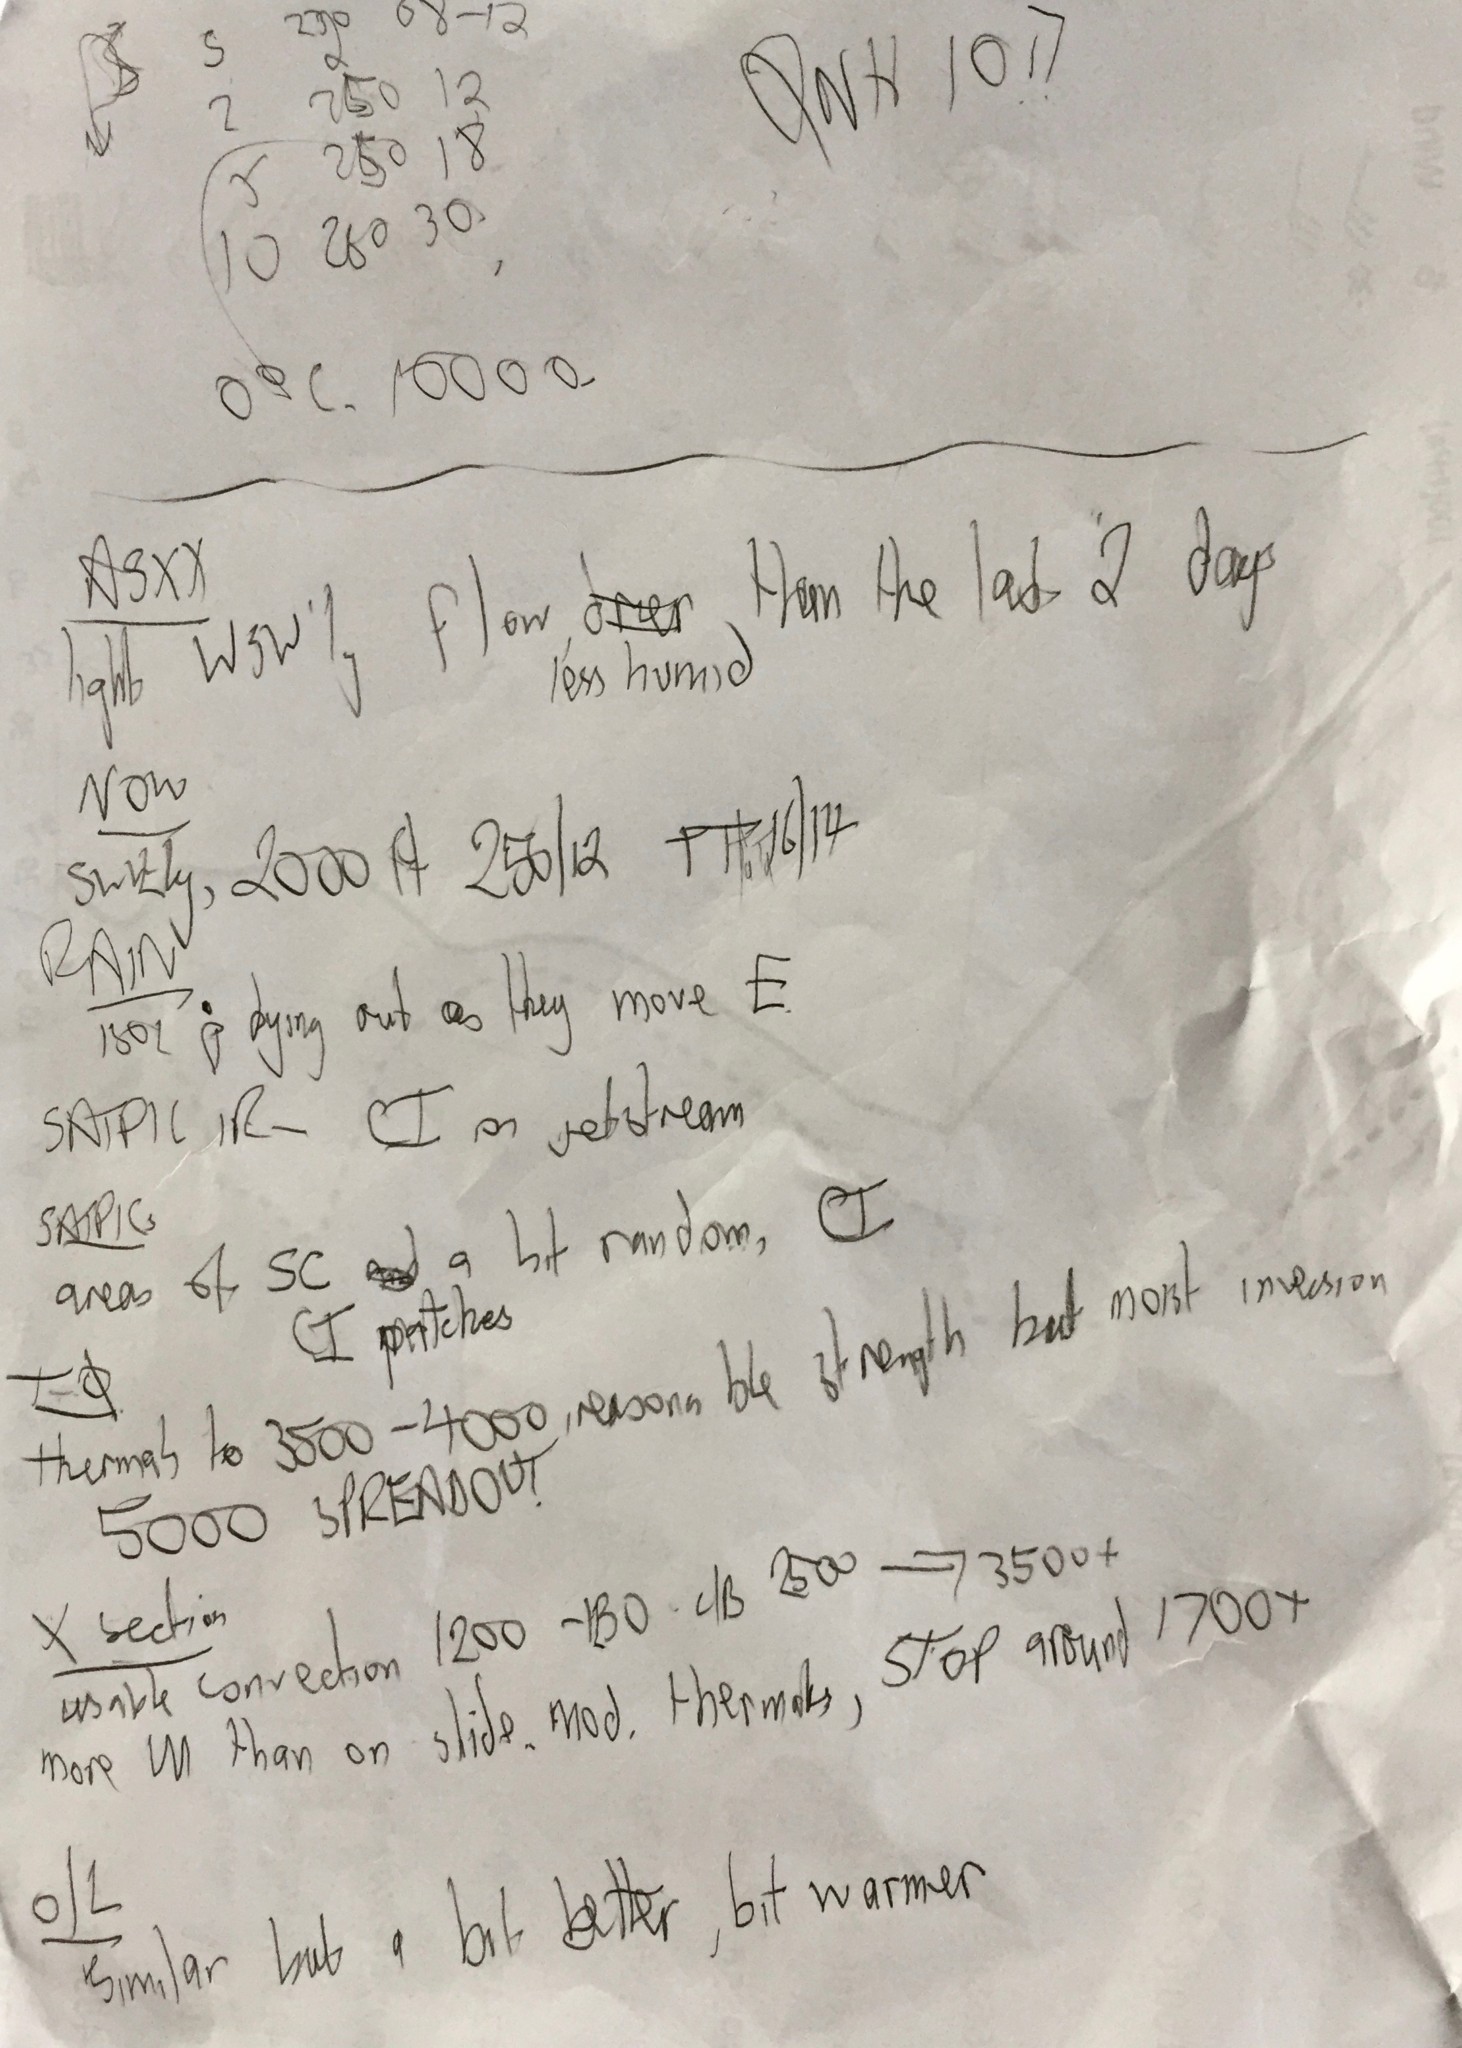 S 230 08-12
2 250 12
5 250 18
10 260 30
QNH 1017
0°C. 10000
ASXX
light WSW'ly flow, drier, than the last 2 days
less humid
NOW
SW'ly, 2000 ft 250/12 TT 16/14
RAIN
dying out as they move E.
SATPIC IR - CI on jetstream
SATPICs
areas of SC and a bit random, CI
CI patches
T-Φ
thermals to 3500-4000, reasonable strength but moist inversion
5000 SPREADOUT!
X section
usable convection 1200 - C/B 2500 ⟹ 3500+
more UN than on slide. Mod. thermals, STOP around 1700+
O/L
Similar but a bit better, bit warmer